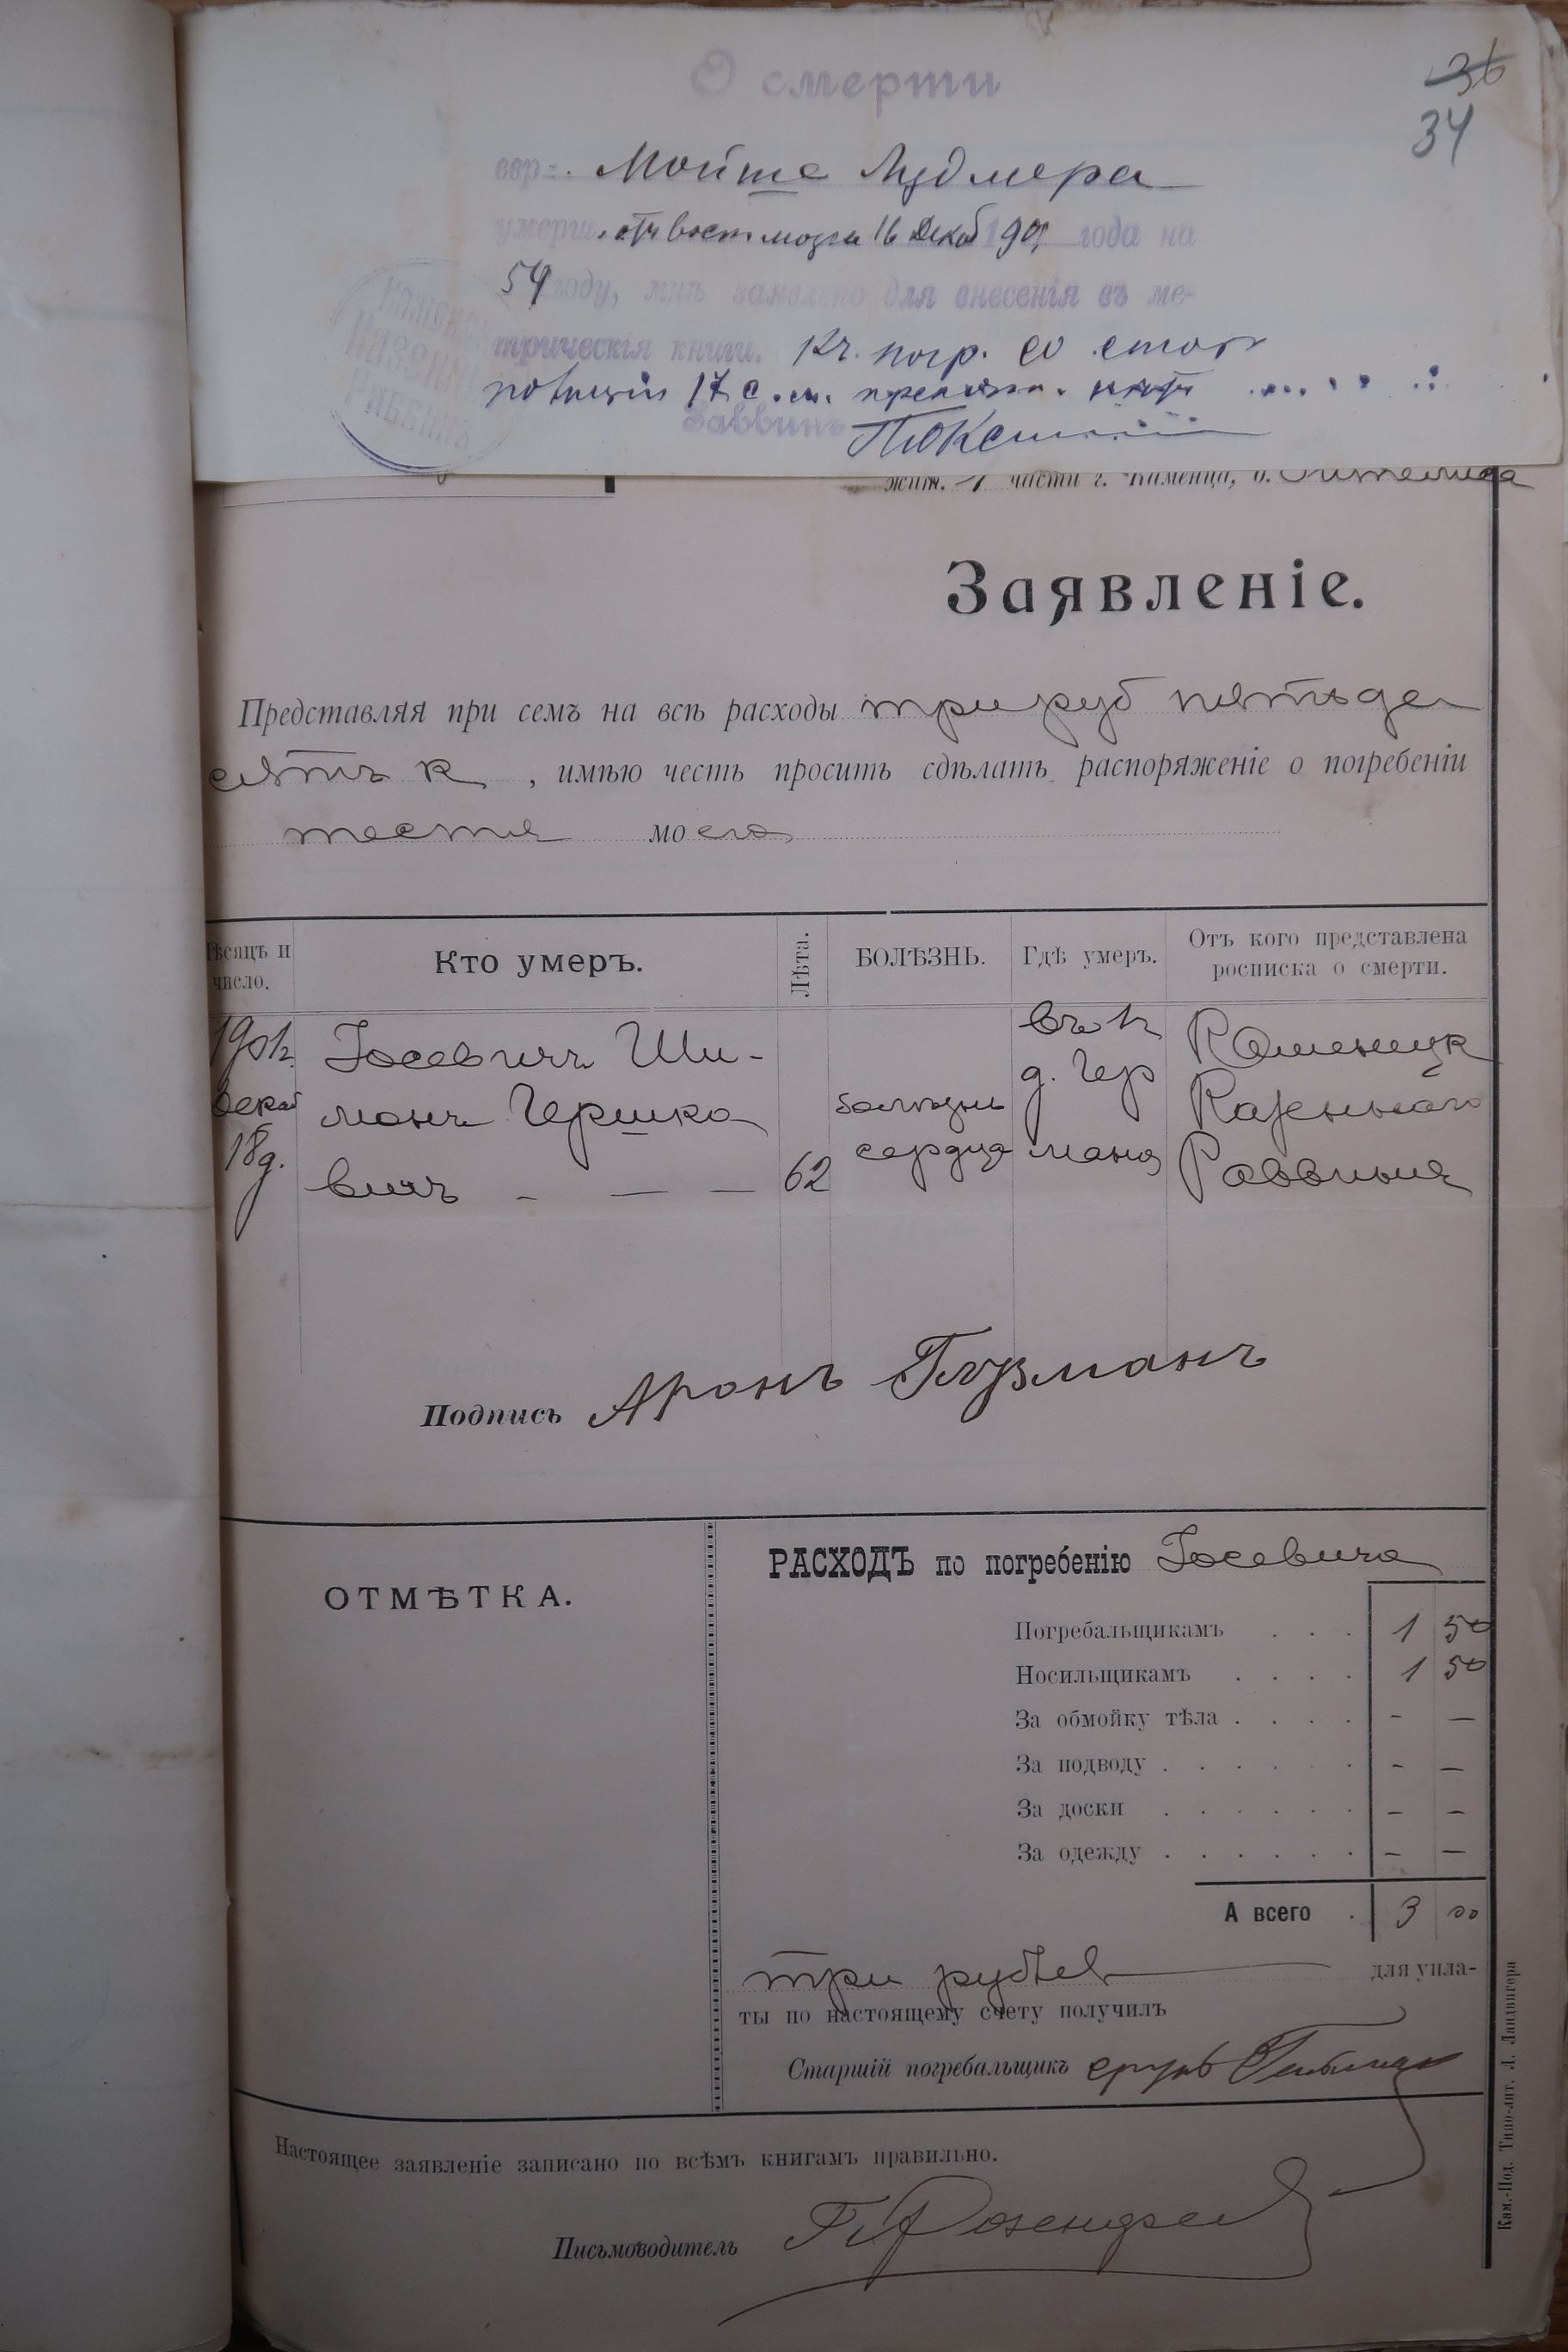 О смерти
36
34
евр. Мойше Лудмера
умерш. отъ восп. мозга 16 Декаб 190 года на
54 году, мнѣ заявлено для внесенія въ ме-
трическія книги. Къ погр. со стор
полиціи 17 с.м. препятст. нѣтъ
Раввинъ
КАМЕНЕЦ
КАЗЕННЫЙ
РАВВИНЪ
жит. 1 части г. Каменца, д.
Заявленіе.
Представляя при семъ на всѣ расходы три руб пятьде
сятъ к , имѣю честь просить сдѣлать распоряженіе о погребеніи
тестя моего
Мѣсяцъ и число.
Кто умеръ.
Лѣта.
БОЛѢЗНЬ.
Гдѣ умеръ.
Отъ кого представлена росписка о смерти.
190
декаб
18 д.
Іосевичъ Ши-
монъ Гершко
вичъ - — —
62
болѣзнь
сердца
въ К
д. Гер
мана
Каменецк
Казеннаго
Раввина
Подпись Аронъ Глузманъ
ОТМѢТКА.
РАСХОДЪ по погребенію Іосевича
Погребальщикамъ . . . 1 50
Носильщикамъ . . . . 1 50
За обмойку тѣла . . . . - —
За подводу . . . . . . - —
За доски . . . . . . - —
За одежду . . . . . . - —
А всего . 3 00
три рублей для упла-
ты по настоящему счету получилъ
Старшій погребальщикъ
Настоящее заявленіе записано по всѣмъ книгамъ правильно.
Письмоводитель
Кам.-Под. Типо-лит. Л. Ландвигера